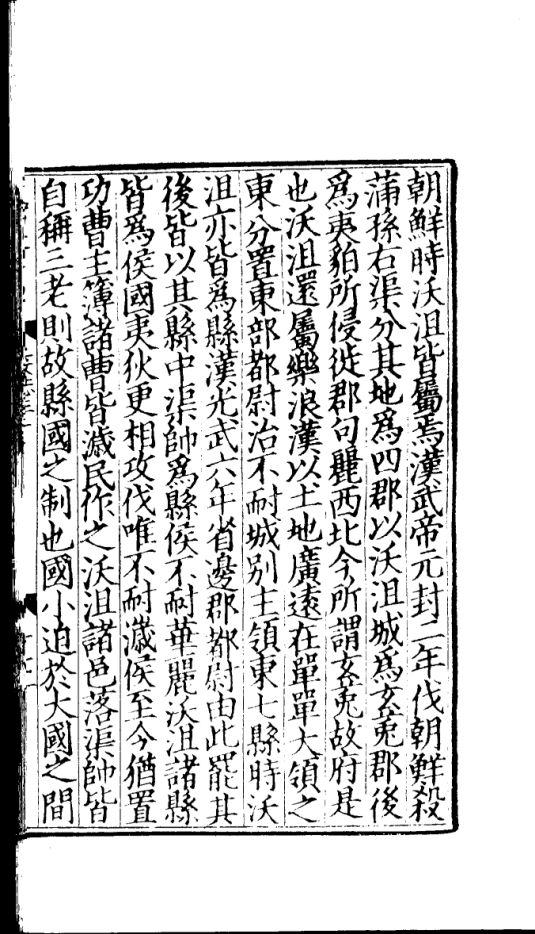 朝鮮時沃沮皆屬焉漢武帝元封二年伐朝鮮殺
蒲孫右渠分其地爲四郡以沃沮城爲玄菟郡後
爲夷貊所侵徙郡句麗西北今所謂玄菟故府是
也沃沮還屬樂浪漢以土地廣遠在單單大領之
東分置東部都尉治不耐城別主領東七縣時沃
沮亦皆爲縣漢光武六年省邊郡都尉由此罷其
後皆以其縣中渠帥爲縣侯不耐華麗沃沮諸縣
皆爲侯國夷狄更相攻伐唯不耐濊侯至今猶置
功曹主簿諸曹皆濊民作之沃沮諸邑落渠帥皆
自稱三老則故縣國之制也國小迫於大國之間